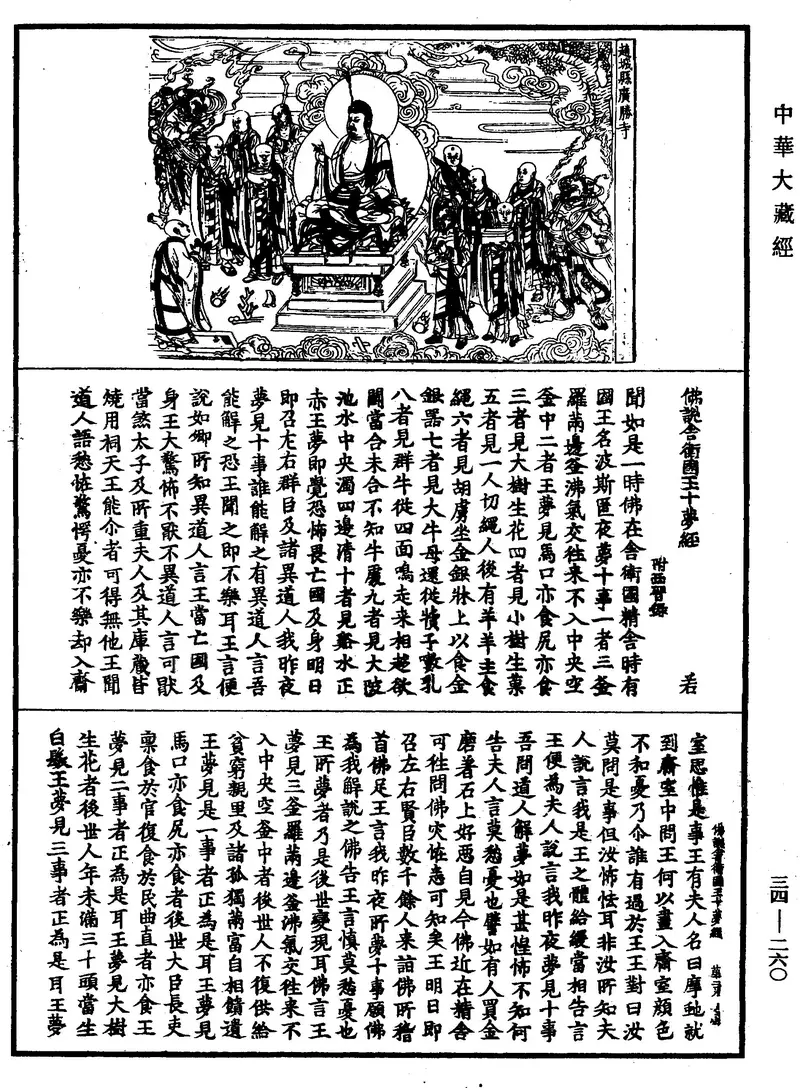 中華大藏經
趙城縣廣勝寺
佛說舍衛國王十夢經 若
附西晉錄
聞如是一時佛在舍衛國精舍時有
國王名波斯匿夜夢十事一者三釜
羅兩邊釜沸氣交往來不入中央空
釜中二者王夢見馬口亦食尻亦食
三者見大樹生花四者見小樹生菓
五者見一人切繩人後有羊羊主食
繩六者見胡虜坐金銀牀上以食金
銀器七者見大牛母還從犢子敷乳
八者見群牛從四面鳴走來相趁欲
鬪當合未合不知牛處九者見大陂
池水中央濁四邊清十者見谿水正
赤王夢即覺恐怖畏亡國及身明日
即召左右群臣及諸異道人我昨夜
夢見十事誰能解之有異道人言吾
能解之恐王聞之即不樂耳王言便
說如卿所知異道人言王當亡國及
身王大驚怖不猒不異道人言可猒
當煞太子及所重夫人及其庫藏皆
燒用祠天王能尒者可得無他王聞
道人語愁恠驚愕憂亦不樂却入齋
佛說舍衛國王十夢經
室思惟是事王有夫人名曰摩馳就
到齋室中問王何以晝入齋室顏色
不和憂乃尒誰有過於王王對曰汝
莫問是事但汝怖怯耳非汝所知夫
人說言我是王之體給緩當相告言
王便為夫人說言我昨夜夢見十事
吾問道人解夢如是甚惶怖不知何
告夫人言莫愁憂也譬如有人買金
磨著石上好惡自見今佛近在精舍
可往問佛灾恠悉可知矣王明日即
召左右賢臣數千餘人來詣佛所稽
首佛足王言我昨夜所夢十事願佛
為我解說之佛告王言慎莫愁憂也
王所夢者乃是後世變現耳佛言王
夢見三釜羅兩邊釜沸氣交往來不
入中央空釜中者後世人不復供給
貧窮親里及諸孤獨兩富自相饋遺
王夢見是一事者正為是耳王夢見
馬口亦食尻亦食者後世大臣長吏
稟食於官復食於民曲直者亦食王
夢見二事者正為是耳王夢見大樹
生花者後世人年未滿三十頭當生
白髮王夢見三事者正為是耳王夢
三四—二六〇